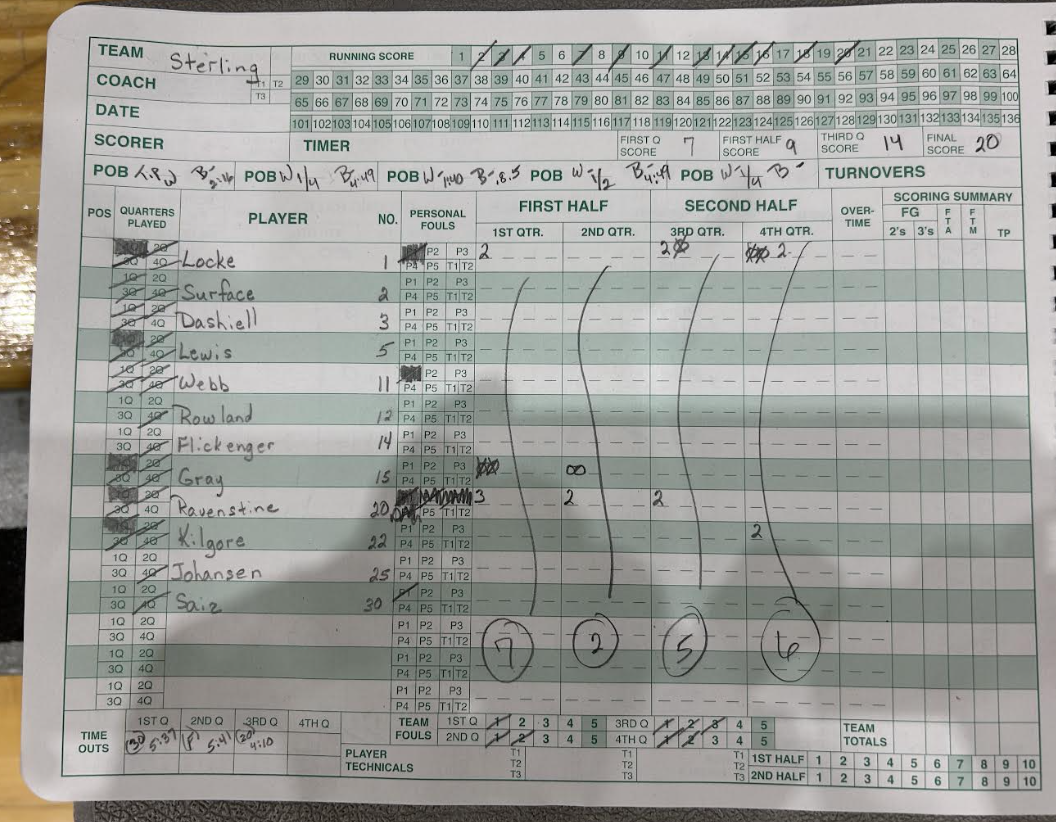 TEAM Sterling RUNNING SCORE 1 2 3 4 5 6 7 8 9 10 11 12 13 14 15 16 17 18 19 20 21 22 23 24 25 26 27 28
COACH T1 T2 29 30 31 32 33 34 35 36 37 38 39 40 41 42 43 44 45 46 47 48 49 50 51 52 53 54 55 56 57 58 59 60 61 62 63 64
T3 65 66 67 68 69 70 71 72 73 74 75 76 77 78 79 80 81 82 83 84 85 86 87 88 89 90 91 92 93 94 95 96 97 98 99 100
DATE 101 102 103 104 105 106 107 108 109 110 111 112 113 114 115 116 117 118 119 120 121 122 123 124 125 126 127 128 129 130 131 132 133 134 135 136
SCORER TIMER FIRST Q SCORE 7 FIRST HALF SCORE 9 THIRD Q SCORE 14 FINAL SCORE 20
POB POB W 1/4 B 4:49 POB W B POB W B 4:49 POB W 1/4 B TURNOVERS
POS QUARTERS PLAYED PLAYER NO. PERSONAL FOULS FIRST HALF SECOND HALF OVER-TIME SCORING SUMMARY
1ST QTR. 2ND QTR. 3RD QTR. 4TH QTR. FG 2's 3's FTA FTM TP
2Q P2 P3 2 2 2
3Q 4Q Locke 1 P4 P5 T1 T2
1Q 2Q P1 P2 P3
3Q 4Q Surface 2 P4 P5 T1 T2
1Q 2Q P1 P2 P3
3Q 4Q Dashiell 3 P4 P5 T1 T2
2Q P1 P2 P3
3Q 4Q Lewis 5 P4 P5 T1 T2
1Q 2Q P2 P3
3Q 4Q Webb 11 P4 P5 T1 T2
1Q 2Q P1 P2 P3
3Q 4Q Rowland 12 P4 P5 T1 T2
1Q 2Q P1 P2 P3
3Q 4Q Flickenger 14 P4 P5 T1 T2
2Q P1 P2 P3
3Q 4Q Gray 15 P4 P5 T1 T2
2Q 3 2 2
3Q 4Q Ravenstine 20 P5 T1 T2
2Q P1 P2 P3 2
3Q 4Q Kilgore 22 P4 P5 T1 T2
1Q 2Q P1 P2 P3
3Q 4Q Johansen 25 P4 P5 T1 T2
1Q 2Q P1 P2 P3
3Q 4Q Saiz 30 P4 P5 T1 T2
1Q 2Q P1 P2 P3
3Q 4Q P4 P5 T1 T2 7 2 5 6
1Q 2Q P1 P2 P3
3Q 4Q P4 P5 T1 T2
1Q 2Q P1 P2 P3
3Q 4Q P4 P5 T1 T2
TIME OUTS 1ST Q 2ND Q 3RD Q 4TH Q TEAM FOULS 1ST Q 1 2 3 4 5 3RD Q 1 2 3 4 5 TEAM TOTALS
(30) 5:37 (F) 5:41 (20) 4:10 2ND Q 1 2 3 4 5 4TH Q 1 2 3 4 5
PLAYER TECHNICALS T1 T1 T1 1ST HALF 1 2 3 4 5 6 7 8 9 10
T2 T2 T2 2ND HALF 1 2 3 4 5 6 7 8 9 10
T3 T3 T3